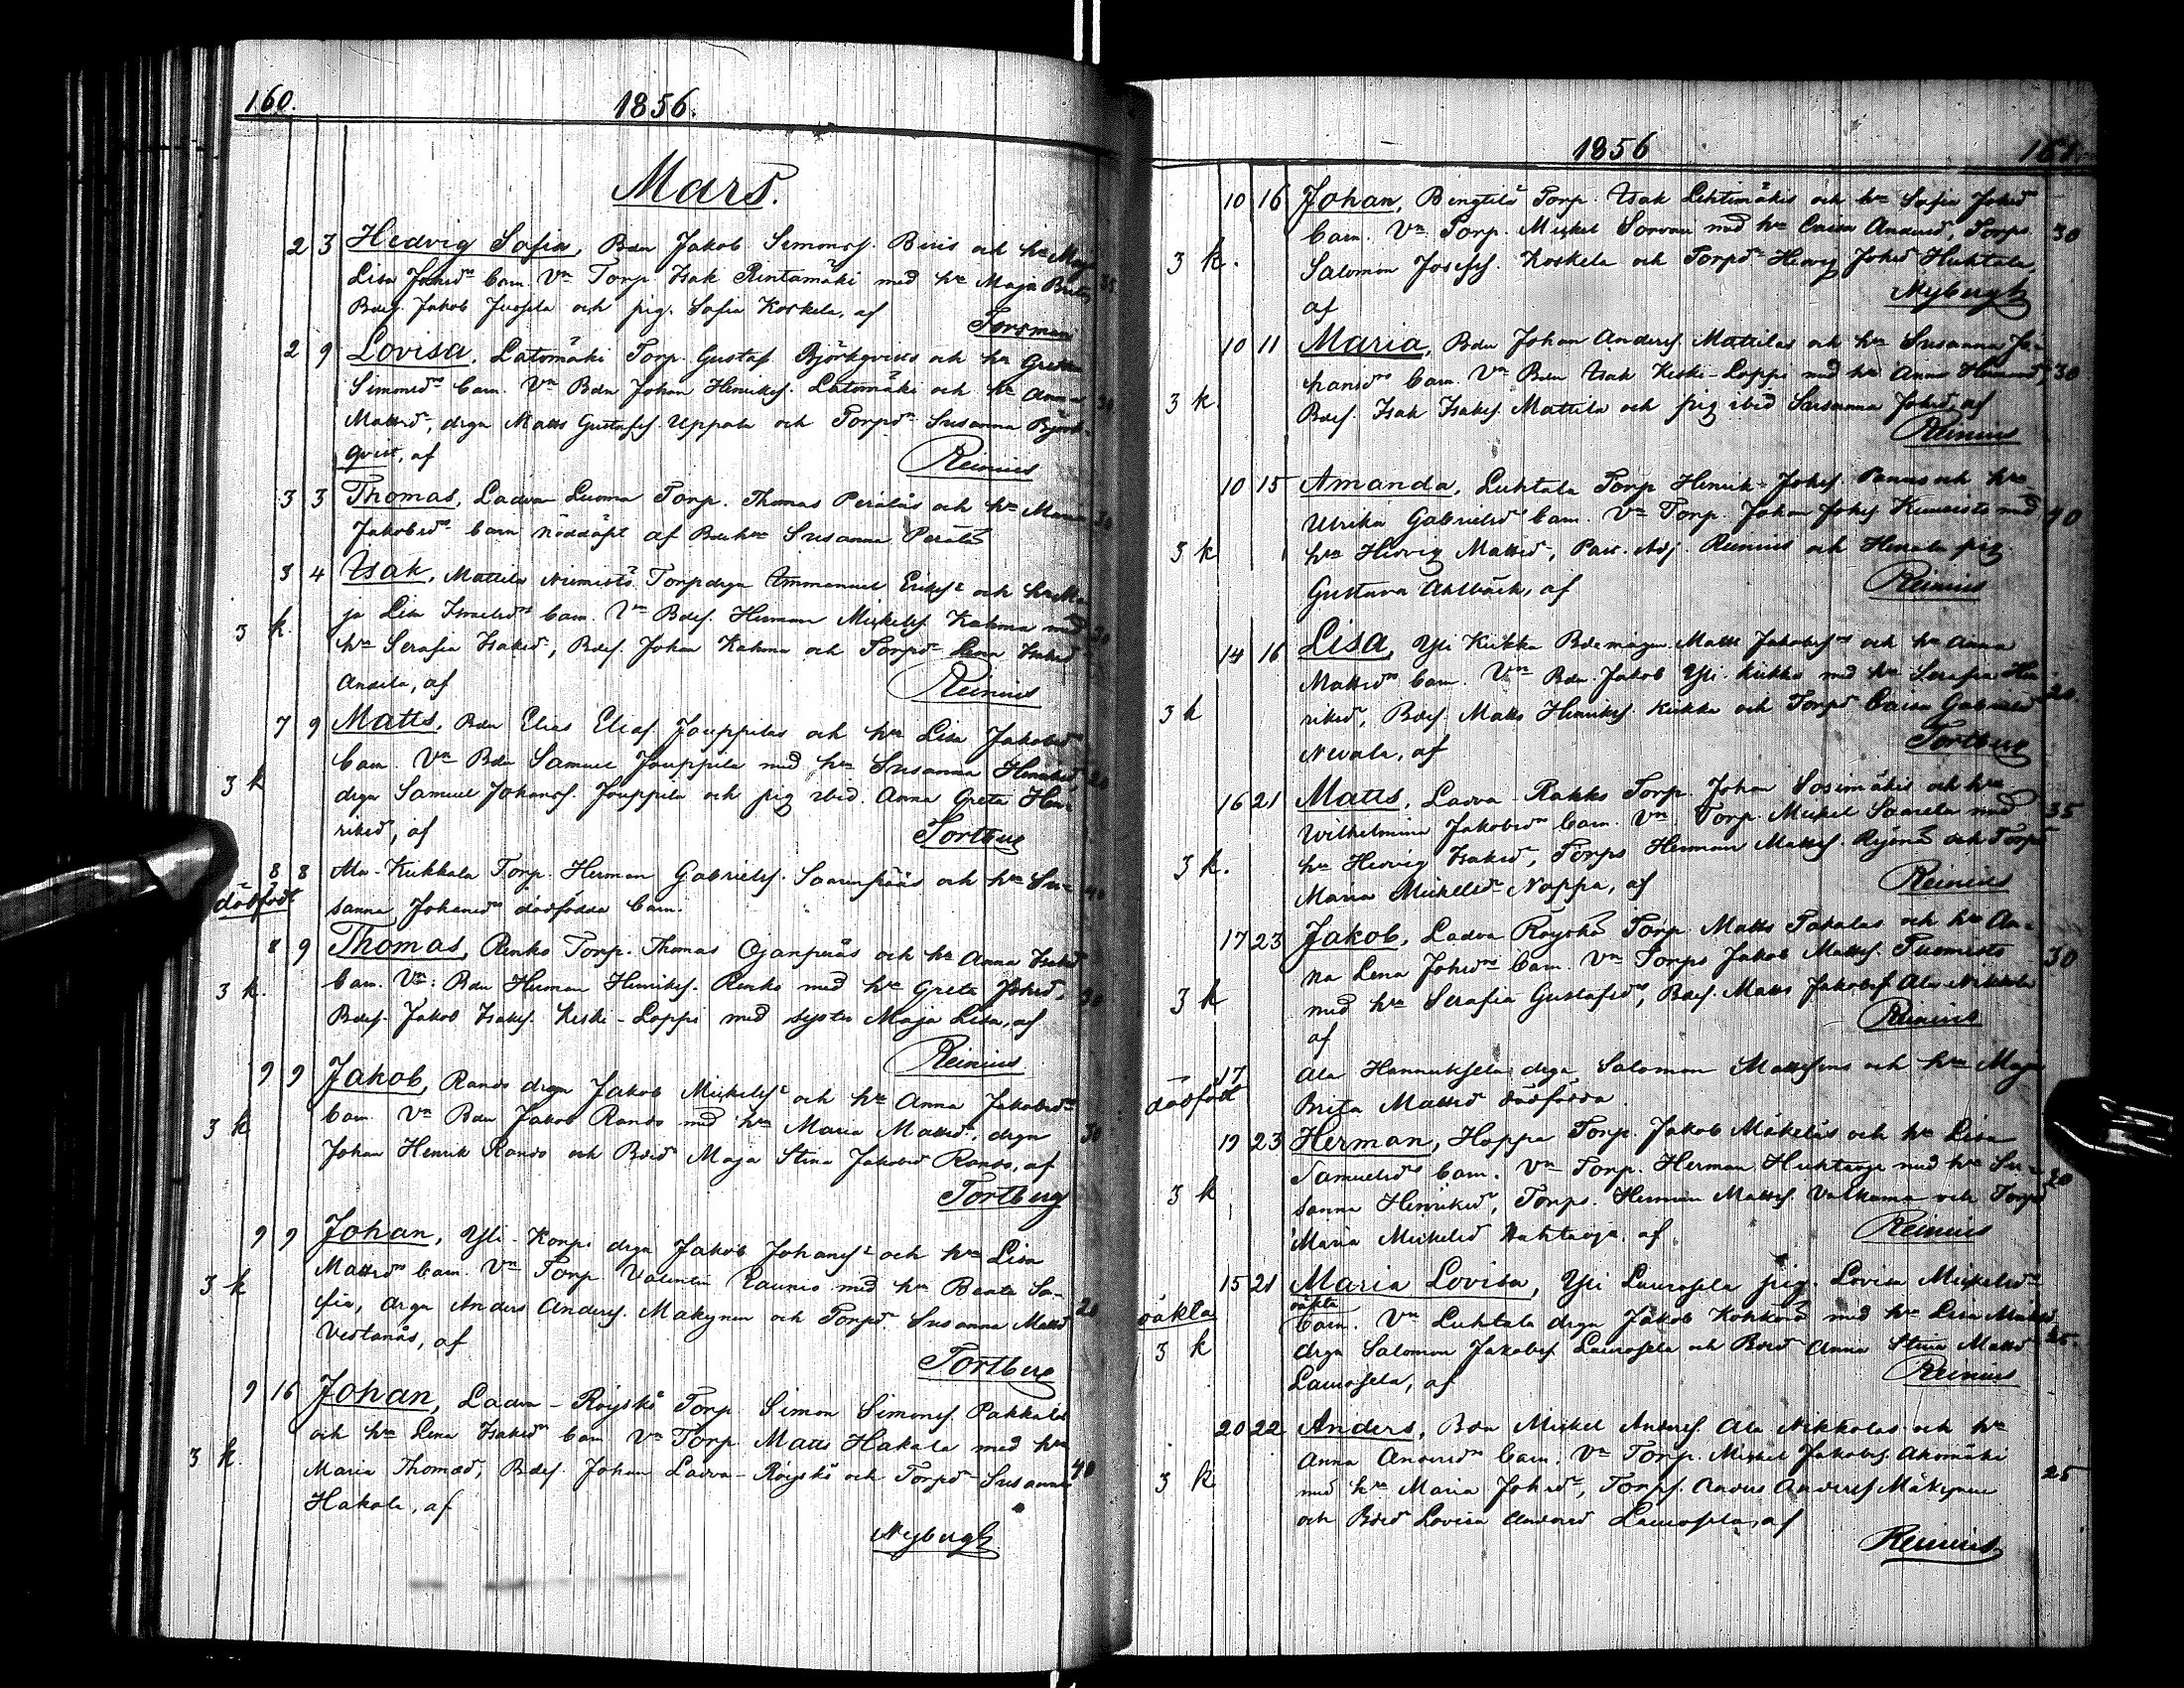 160.
1856.
Mars.
2 3 Hedvig Sofia, Bdn Jakob Simonss. Biris och hru Maja
Lisa Johsdrs barn. Vn Torp. Isak Rintamäki med hru Maja Brita, 35
Bdes. Jakob Juossela och pig. Sofia Koskela, af
Forsman
2 9 Lovisa, Latomäki Torp. Gustaf Björkqvists och hru Greta
Simonsdrs barn. Vn Bdn Johan Henrikss. Latomäki och hru Anna 30
Mattsdr, drgn Matts Gustafss. Uppala och Torpdr Susanna Björk-
qvist, af
Reinius
3 3 Thomas, Ladva Luoma Torp. Thomas Peräläs och hru Maria 30
Jakobsdrs barn nöddöpt af Bdehru Susanna Perälä
3 4 Isak, Mattila Niemistö Torpdrgn Emmanuel Erikss och hru Ma-
ja Lisa Ismelsdrs barn. Vn Bdes. Herman Mickelss. Kahma med 30
3 k.
hru Serafia Isaksdr, Bdes. Johan Kahma och Torpdr Lena Isaksdr
Ansela, af
Reinius
7 9 Matts, Bdn Elias Eliass. Jouppilas och hru Lisa Jakobsdrs
barn. Vn Bdn Samuel Jouppila med hru Susanna Henriksdr, 20
3 k
drgn Samuel Johanss. Jouppila och pig ibid. Anna Greta Hen-
riksdr, af
Tortberg
8 8 Ala-Kukkala Torp. Herman Gabrielss. Saarenpääs och hru Su- 40
dödfödt
sanna Johansdrs dödfödda barn.
8 9 Thomas, Renko Torp. Thomas Ojanperäs och hru Anna Isaksdrs
barn. Vn: Bdn Herman Henrikss. Renko med hru Greta Johsdr, 30
3 k.
Bdes. Jakob Isakss. Keski-Loppi med syster Maja Lisa, af
Reinius
9 9 Jakob, Ranos drgn Jakob Mickelss och hru Anna Jakobsdrs
barn Vn Bdn Jakob Ranos med hru Maria Mattsdr, drgn 30
3 k
Johan Henrik Ranos och Bdedr Maja Stina Jakobsdr Ranos, af
Tortberg
9 9 Johan, Yli-Korpi drgn Jakob Johanss och hru Lisa
Mattsdrs barn. Vn Torp. Valentin Raunio med hru Beata So-
3 k
fia, drgn Anders Anderss. Makynen och Torpdr Susanna Mattsdr 20
Vestanås, af
Tortberg
9 16 Johan, Ladva-Röyskö Torp. Simon Simonss. Pakkala
och hru Lena Isaksdrs barn Vn Torp. Matts Hakala med hru
3 k.
Maria Thomasdr, Bdes. Johan Ladva-Röyskö och Torpdr Susanna 40
Hakala, af
Nybergh
1856
161.
10 16 Johan, Bengtilä Torp. Isak Lehtimäkis och hru Sofia Johsdrs
barn. Vn: Torp. Mickel Sorvari med hru Caisa Andersdr, Torps. 30
3 k.
Salomon Josefss. Koskela och Torpdr Hedvig Johsdr Huhtala,
af
Nybergh
10 11 Maria, Bdn Johan Anderss. Mattilas och hru Susanna Jo-
hansdrs barn. Vn Bdn Isak Keski-Loppi med hru Anna Hermansdr, 30
3 k
Bdes. Isak Isakss. Mattila och pig ibid Susanna Johsdr, af
Reinius
10 15 Amanda, Luhtala Torp Henrik Johss. Pannas och hru
Ulrika Gabrielsdrs barn. Vn Torp. Johan Johss Kumisto med 40
3 k
hru Hedvig Mattsdr, Past. Adj. Reinius och Himala pig.
Gustava Ahlbäck, af
Reinius
14 16 Lisa, Yli Kukka Bdemågen Matts Jakobss och hru Anna
Mattsdrs barn. Vn Bdn Jakob Yli-Kukka med hru Serafia Hen-
3 k
riksdr, Bdes. Matts Henrikss. Kukka och Torpdr Caisa Gabrielsdr 20.
Nevala, af
Tortberg
16 21 Matts, Ladva-Rakko Torp. Johan Sosimäkis och hru
Wilhelmina Jakobsdrs barn. Vn. Torp. Mickel Saarela med 35
3 k.
hru Hedvig Isaksdr, Torps Herman Mattss. Rejonä och Torpdr
Maria Mickelsdr Noppa, af
Reinius
17 23 Jakob, Ladva Röyskö Torp. Matts Pakalas och hru An-
na Lena Johsdrs barn. Vn Torps Jakob Mattss. Tuomisto 30
3 k
med hru Serafia Gustafsdr, Bdes. Matts Jakobss Ala-Nikkola
af
Reinius
17 Ala Hannuksela drgn Salomon Mattssons och hru Maja
dödfödt
Brita Mattsdr dödfödda.
19 23 Herman, Hoppa Torp. Jakob Mäkeläs och hru Lisa
Samuelsdrs barn. Vn Torp. Herman Huhtaoja med hru Su- 20
3 k
sanna Henriksdr, Torps. Herman Mattss. Valkama och Torpdr
Maria Mickelsdr Huhtaoja, af
Reinius
15 21 Maria Lovisa, Yli Laurosela pig. Lovisa Mickelsdrs
oäkta
oäkta
barn. Vn Luhtala drgn Jakob Kohkonö med hru Lisa Mattsdr,
3 k
drgn Salomon Jakobss Laurosela och Bdedr Anna Stina Mattsdr 25.
Laurosela, af
Reinius
20 22 Anders, Bdn Mickel Anderss. Ala Nikkolas och hru
Anna Andersdrs barn. Vn Torp. Mickel Jakobss. Ahomäki
3 k
med hru Maria Johsdr, Torps. Anders Anderss Mäkynen 25
och Bdedr Lovisa Andersdr Laurosela, af
Reinius